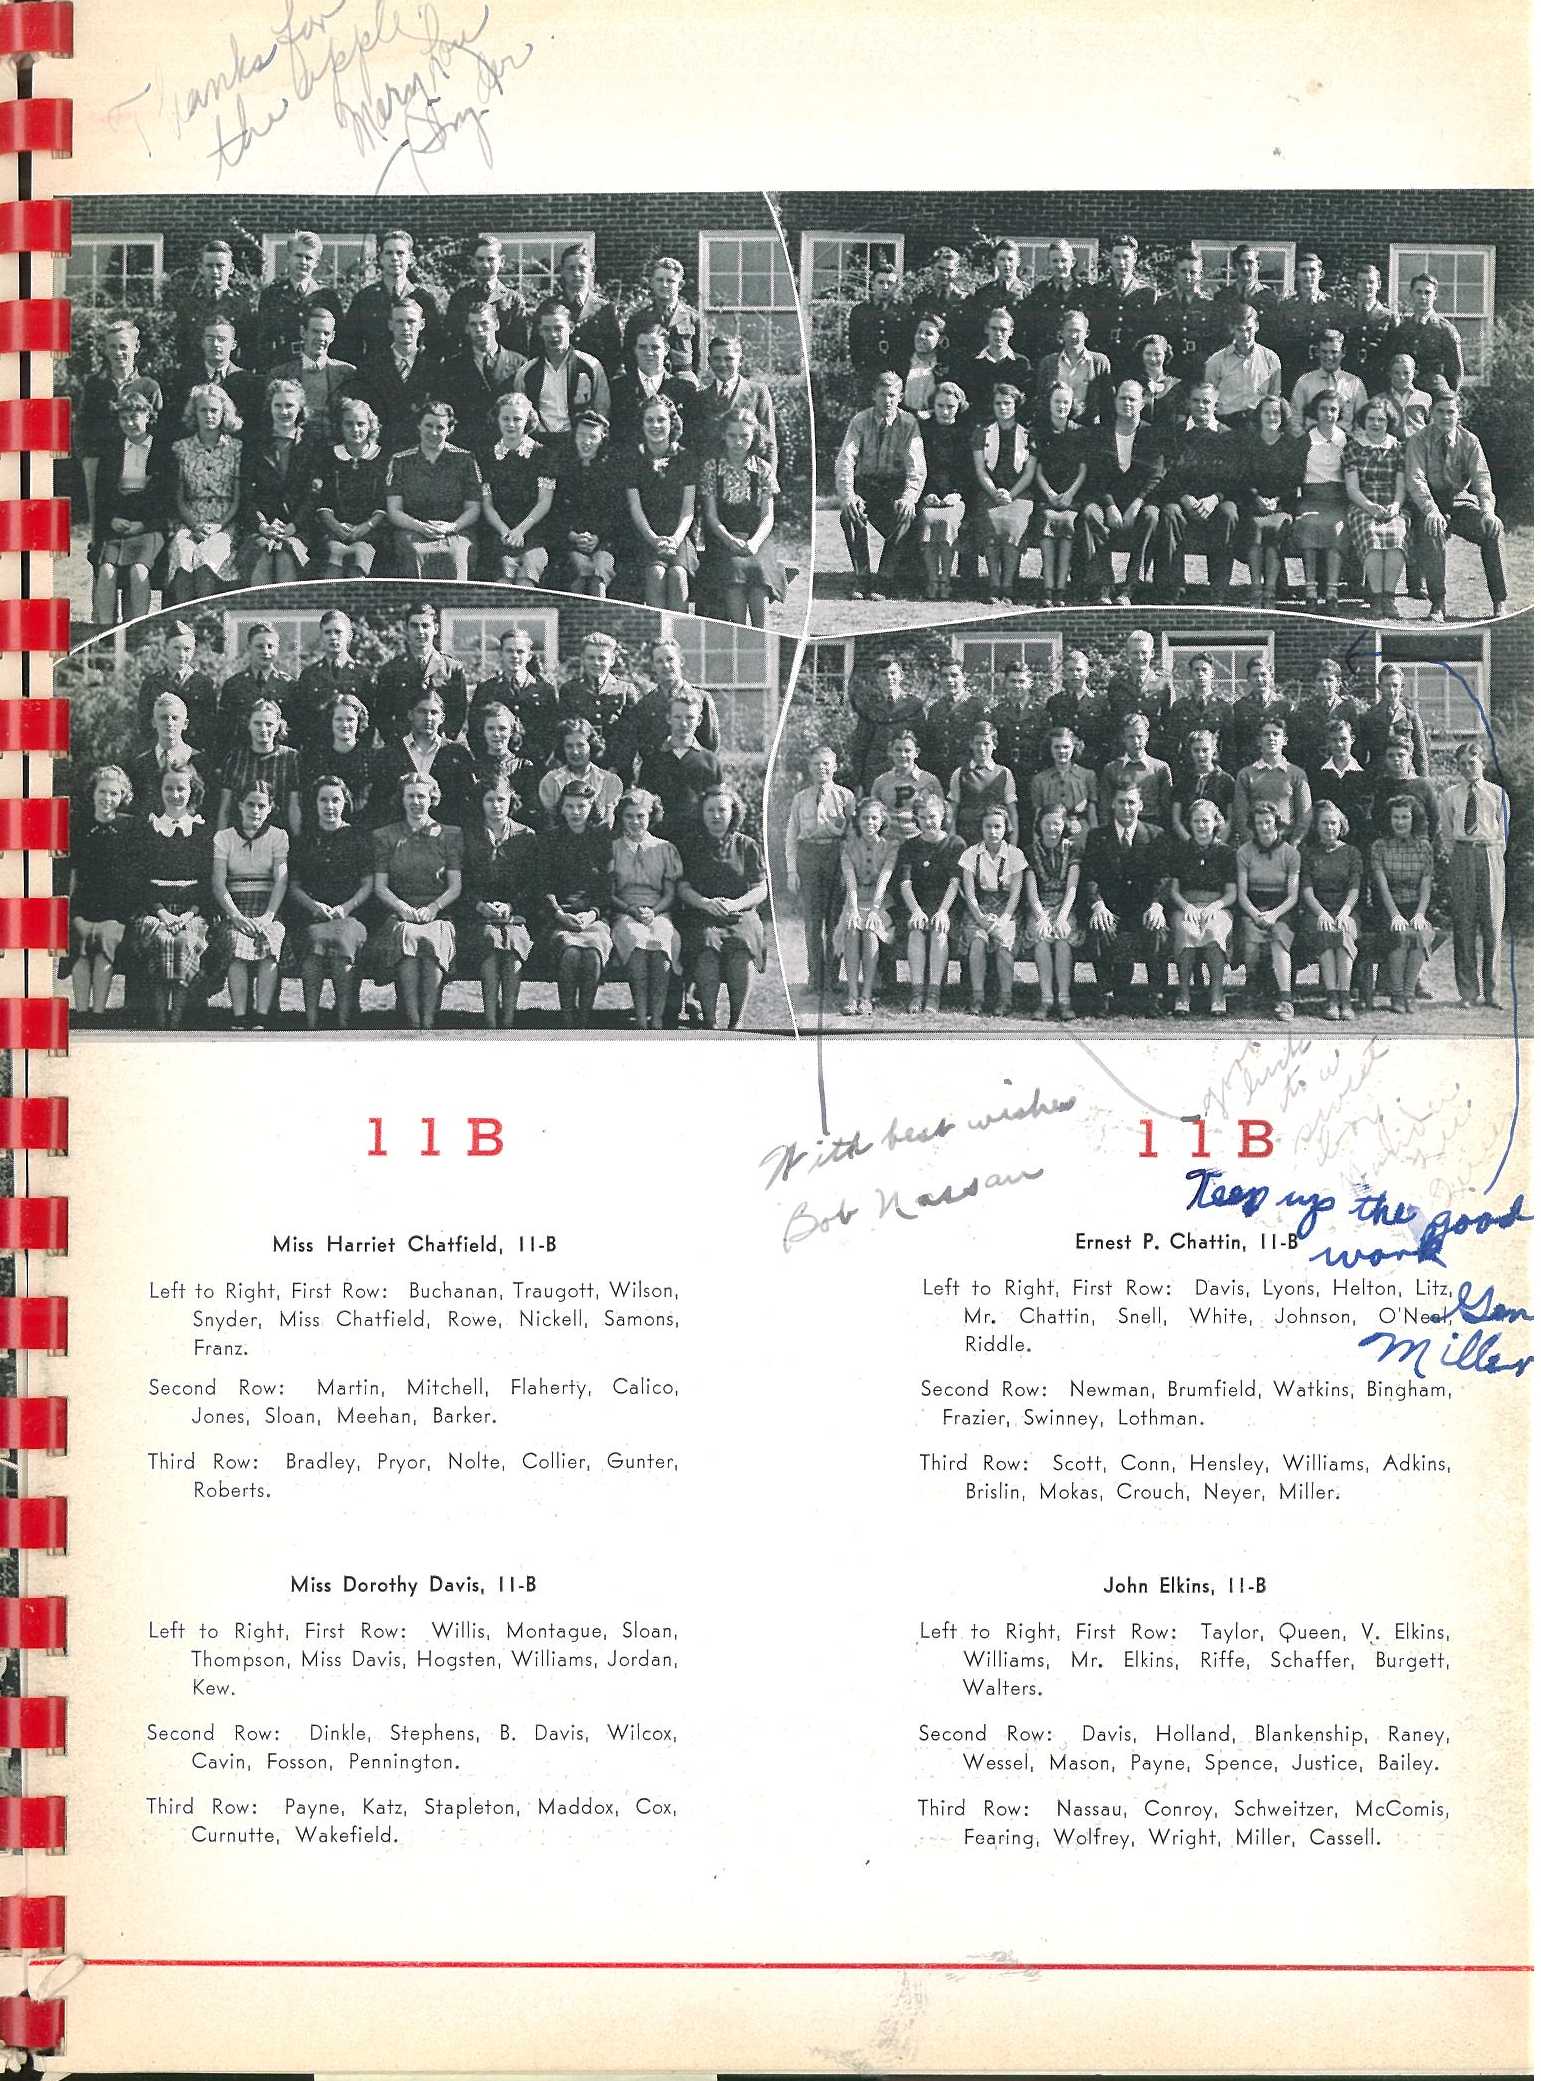 Thanks for
the apple
Mary Lou
Snyder
11B
Miss Harriet Chatfield, 11-B
Left to Right, First Row: Buchanan, Traugott, Wilson,
Snyder, Miss Chatfield, Rowe, Nickell, Samons,
Franz.
Second Row: Martin, Mitchell, Flaherty, Calico,
Jones, Sloan, Meehan, Barker.
Third Row: Bradley, Pryor, Nolte, Collier, Gunter,
Roberts.
Miss Dorothy Davis, 11-B
Left to Right, First Row: Willis, Montague, Sloan,
Thompson, Miss Davis, Hogsten, Williams, Jordan,
Kew.
Second Row: Dinkle, Stephens, B. Davis, Wilcox,
Cavin, Fosson, Pennington.
Third Row: Payne, Katz, Stapleton, Maddox, Cox,
Curnutte, Wakefield.
With best wishes
Bob Nassau
good
luck
to a
sweet
boy.
11B
Keep up the good
work
Gen
Miller
Ernest P. Chattin, 11-B
Left to Right, First Row: Davis, Lyons, Helton, Litz,
Mr. Chattin, Snell, White, Johnson, O'Neal,
Riddle.
Second Row: Newman, Brumfield, Watkins, Bingham,
Frazier, Swinney, Lothman.
Third Row: Scott, Conn, Hensley, Williams, Adkins,
Brislin, Mokas, Crouch, Neyer, Miller.
John Elkins, 11-B
Left to Right, First Row: Taylor, Queen, V. Elkins,
Williams, Mr. Elkins, Riffe, Schaffer, Burgett,
Walters.
Second Row: Davis, Holland, Blankenship, Raney,
Wessel, Mason, Payne, Spence, Justice, Bailey.
Third Row: Nassau, Conroy, Schweitzer, McComis,
Fearing, Wolfrey, Wright, Miller, Cassell.